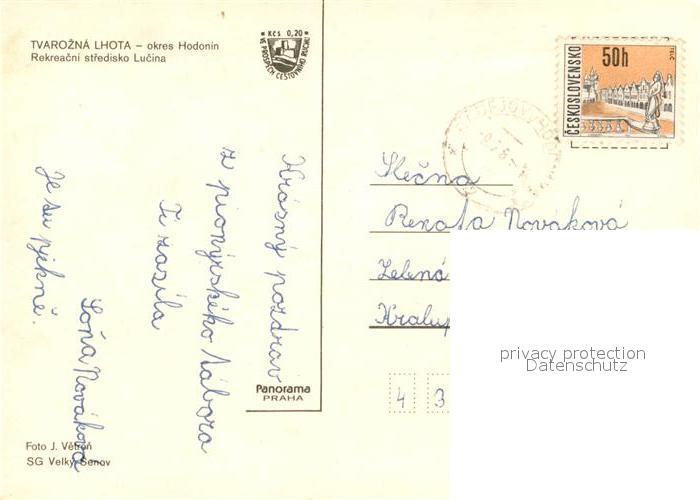 TVAROŽNÁ LHOTA – okres Hodonín
Rekreační středisko Lučina
Kčs 0,20
VE PROSPĚCH CESTOVNÍHO RUCHU
ČESKOSLOVENSKO
50h
TELČ
Krásný pozdrav
z pionýrského tábora
Ti zasílá
Soňa Nováková
Je tu pjekně.
Slečna
Renata Nováková
Zelená
Kralup
4 3
privacy protection
Datenschutz
Panorama
PRAHA
Foto J. Větroň
SG Velký Šenov